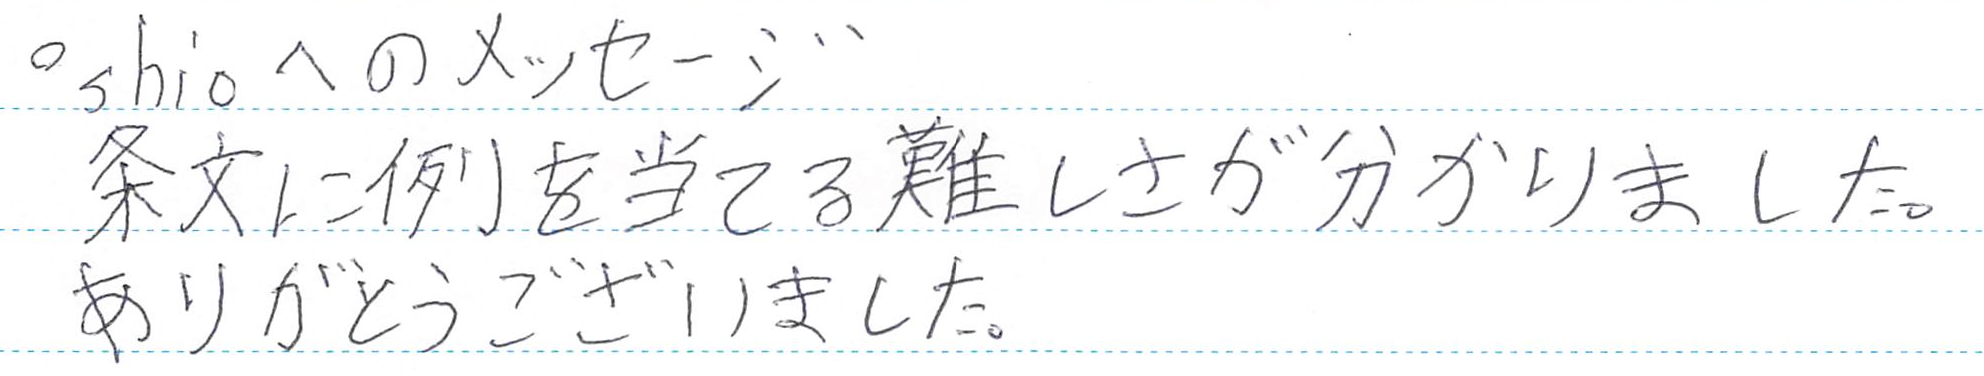 °shioへのメッセージ
条文に例を当てる難しさが分かりました。
ありがとうございました。